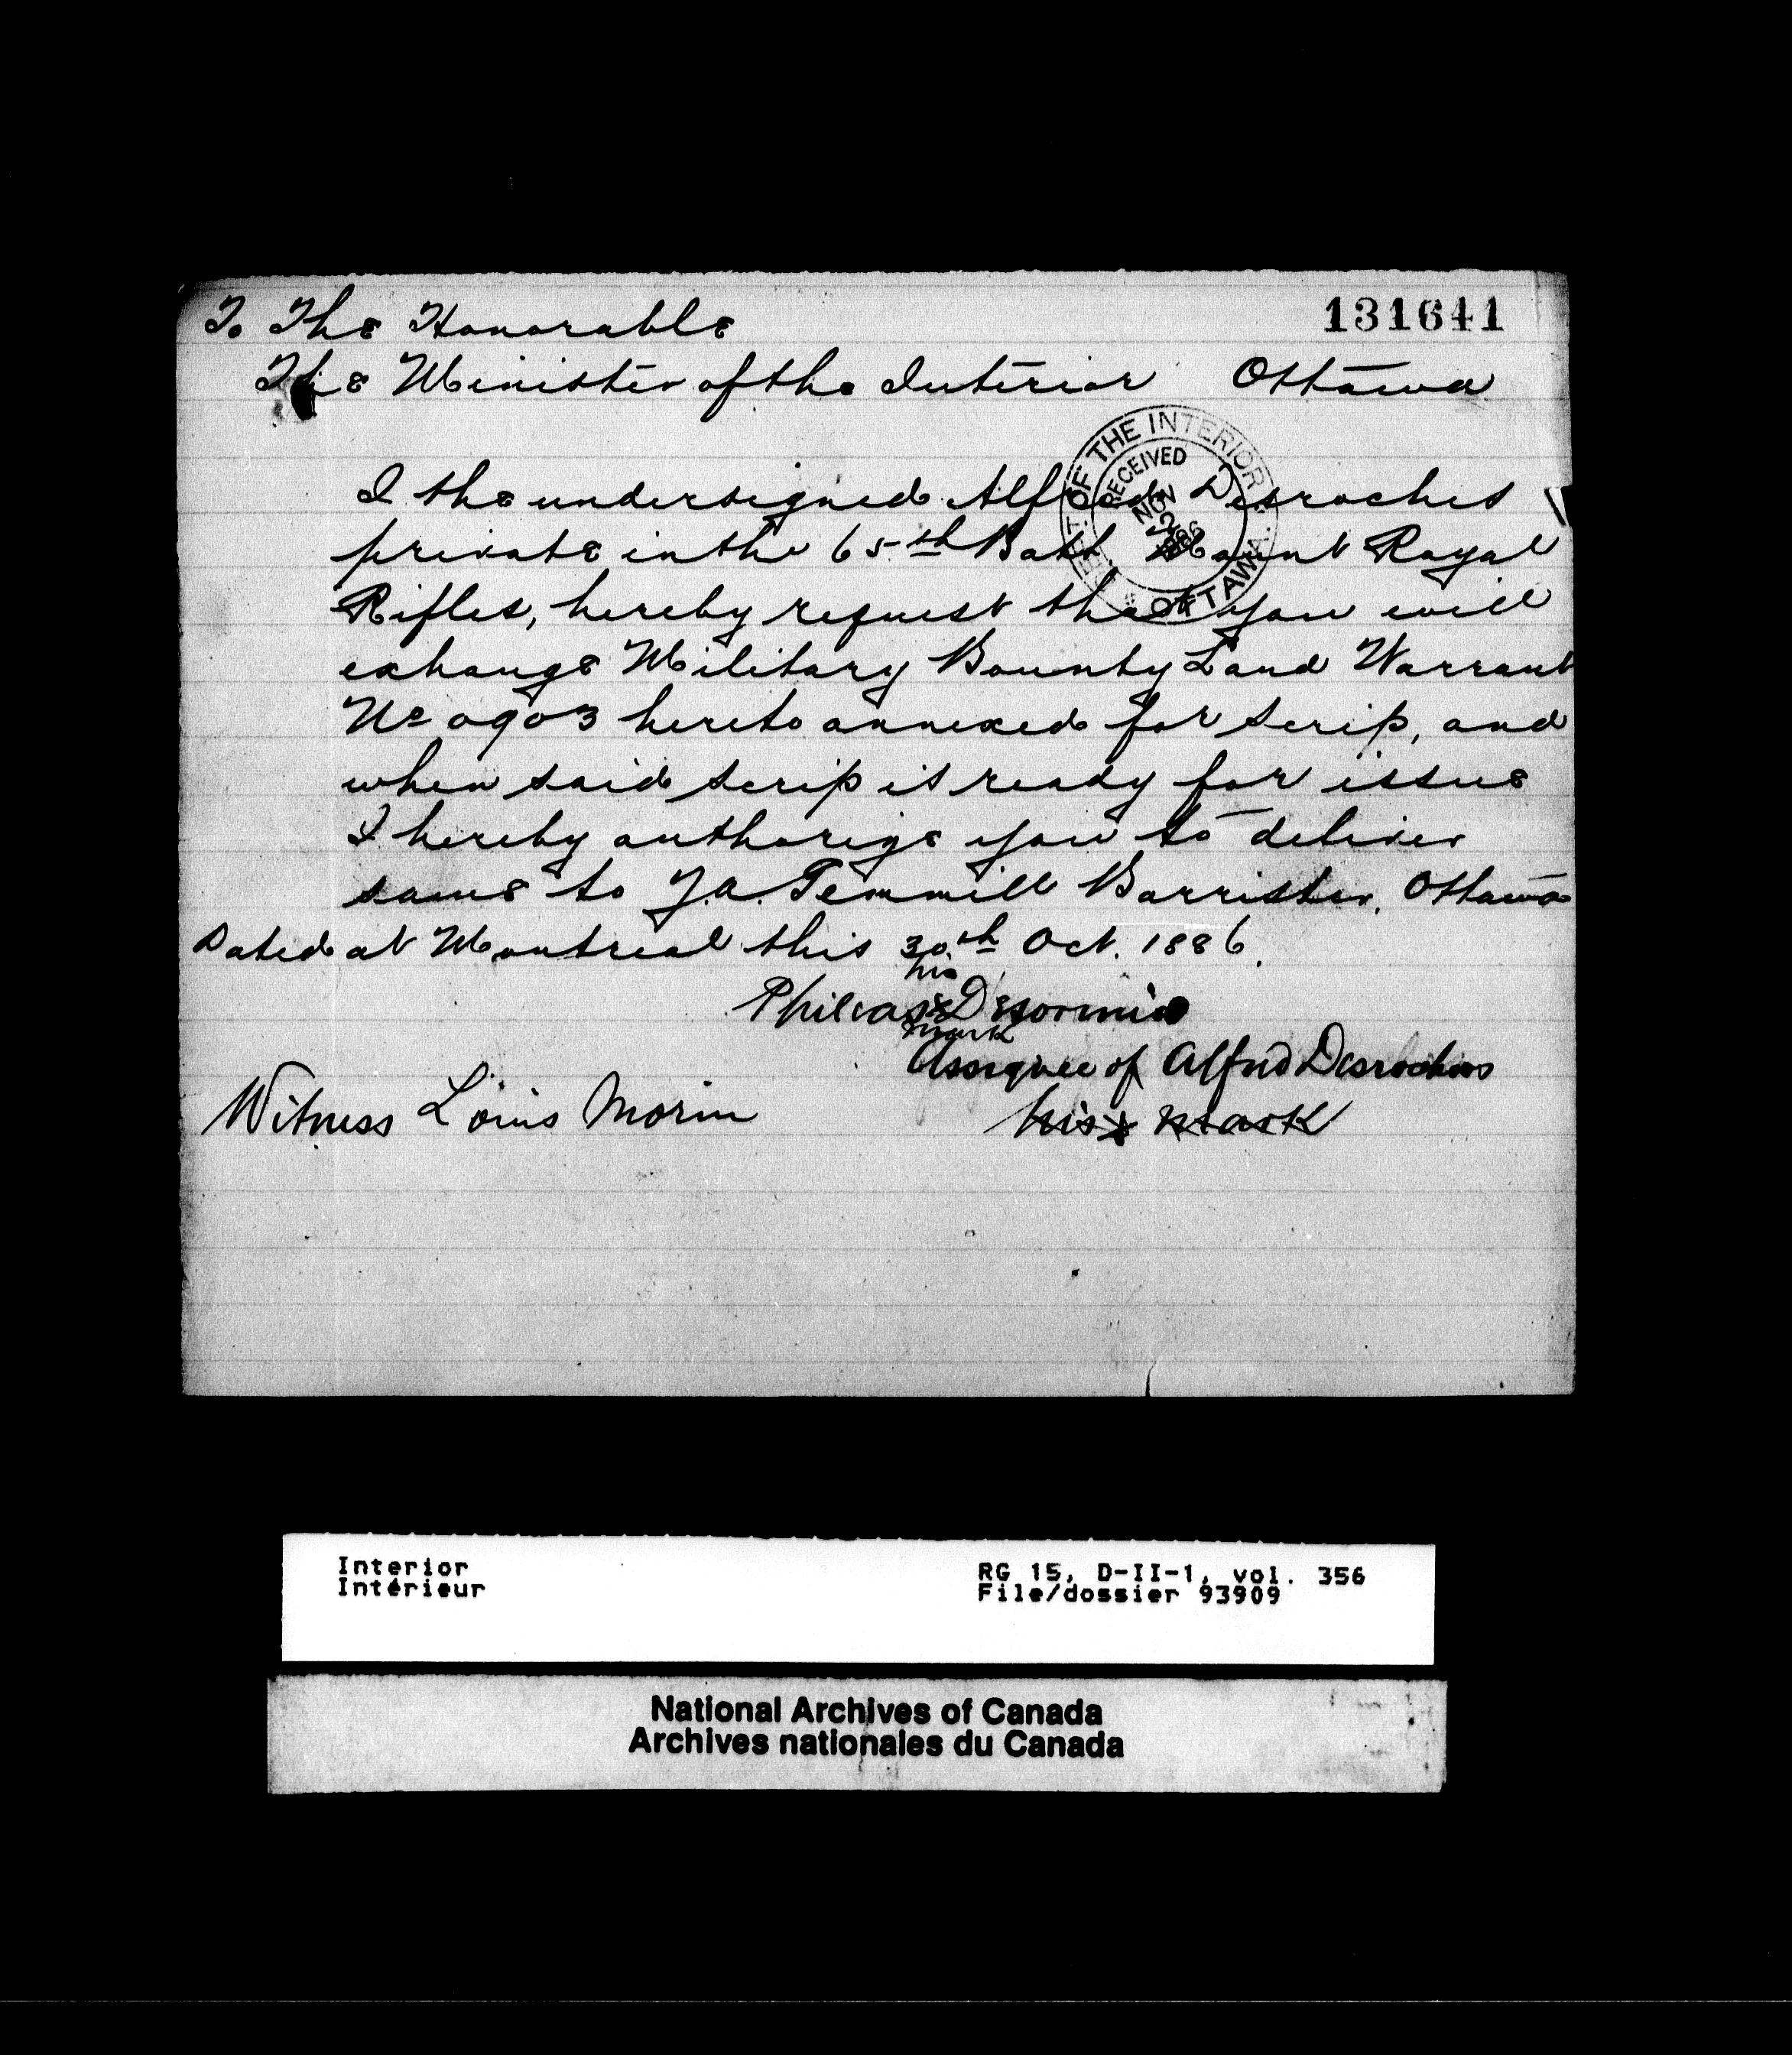 To The Honorable
131641
The Minister of the Interior Ottawa
DEPT. OF THE INTERIOR
RECEIVED
NOV
2
1886
OTTAWA
I the undersigned Alfred Desroches
private in the 65th Batt Mount Royal
Rifles, hereby request that you will
exhange Military Bounty Land Warrant
No 0903 hereto annexed for scrip, and
when said scrip is ready for issue
I hereby authorize you to deliver
same to J.A. Gemmill Barrister, Ottawa
Dated at Montreal this 30th Oct. 1886.
his
Phileas x Desormie
mark
Assignee of Alfred Desrochers
Witness Louis Morin his x mark
Interior
Intérieur
RG 15, D-II-1, vol. 356
File/dossier 93909
National Archives of Canada
Archives nationales du Canada